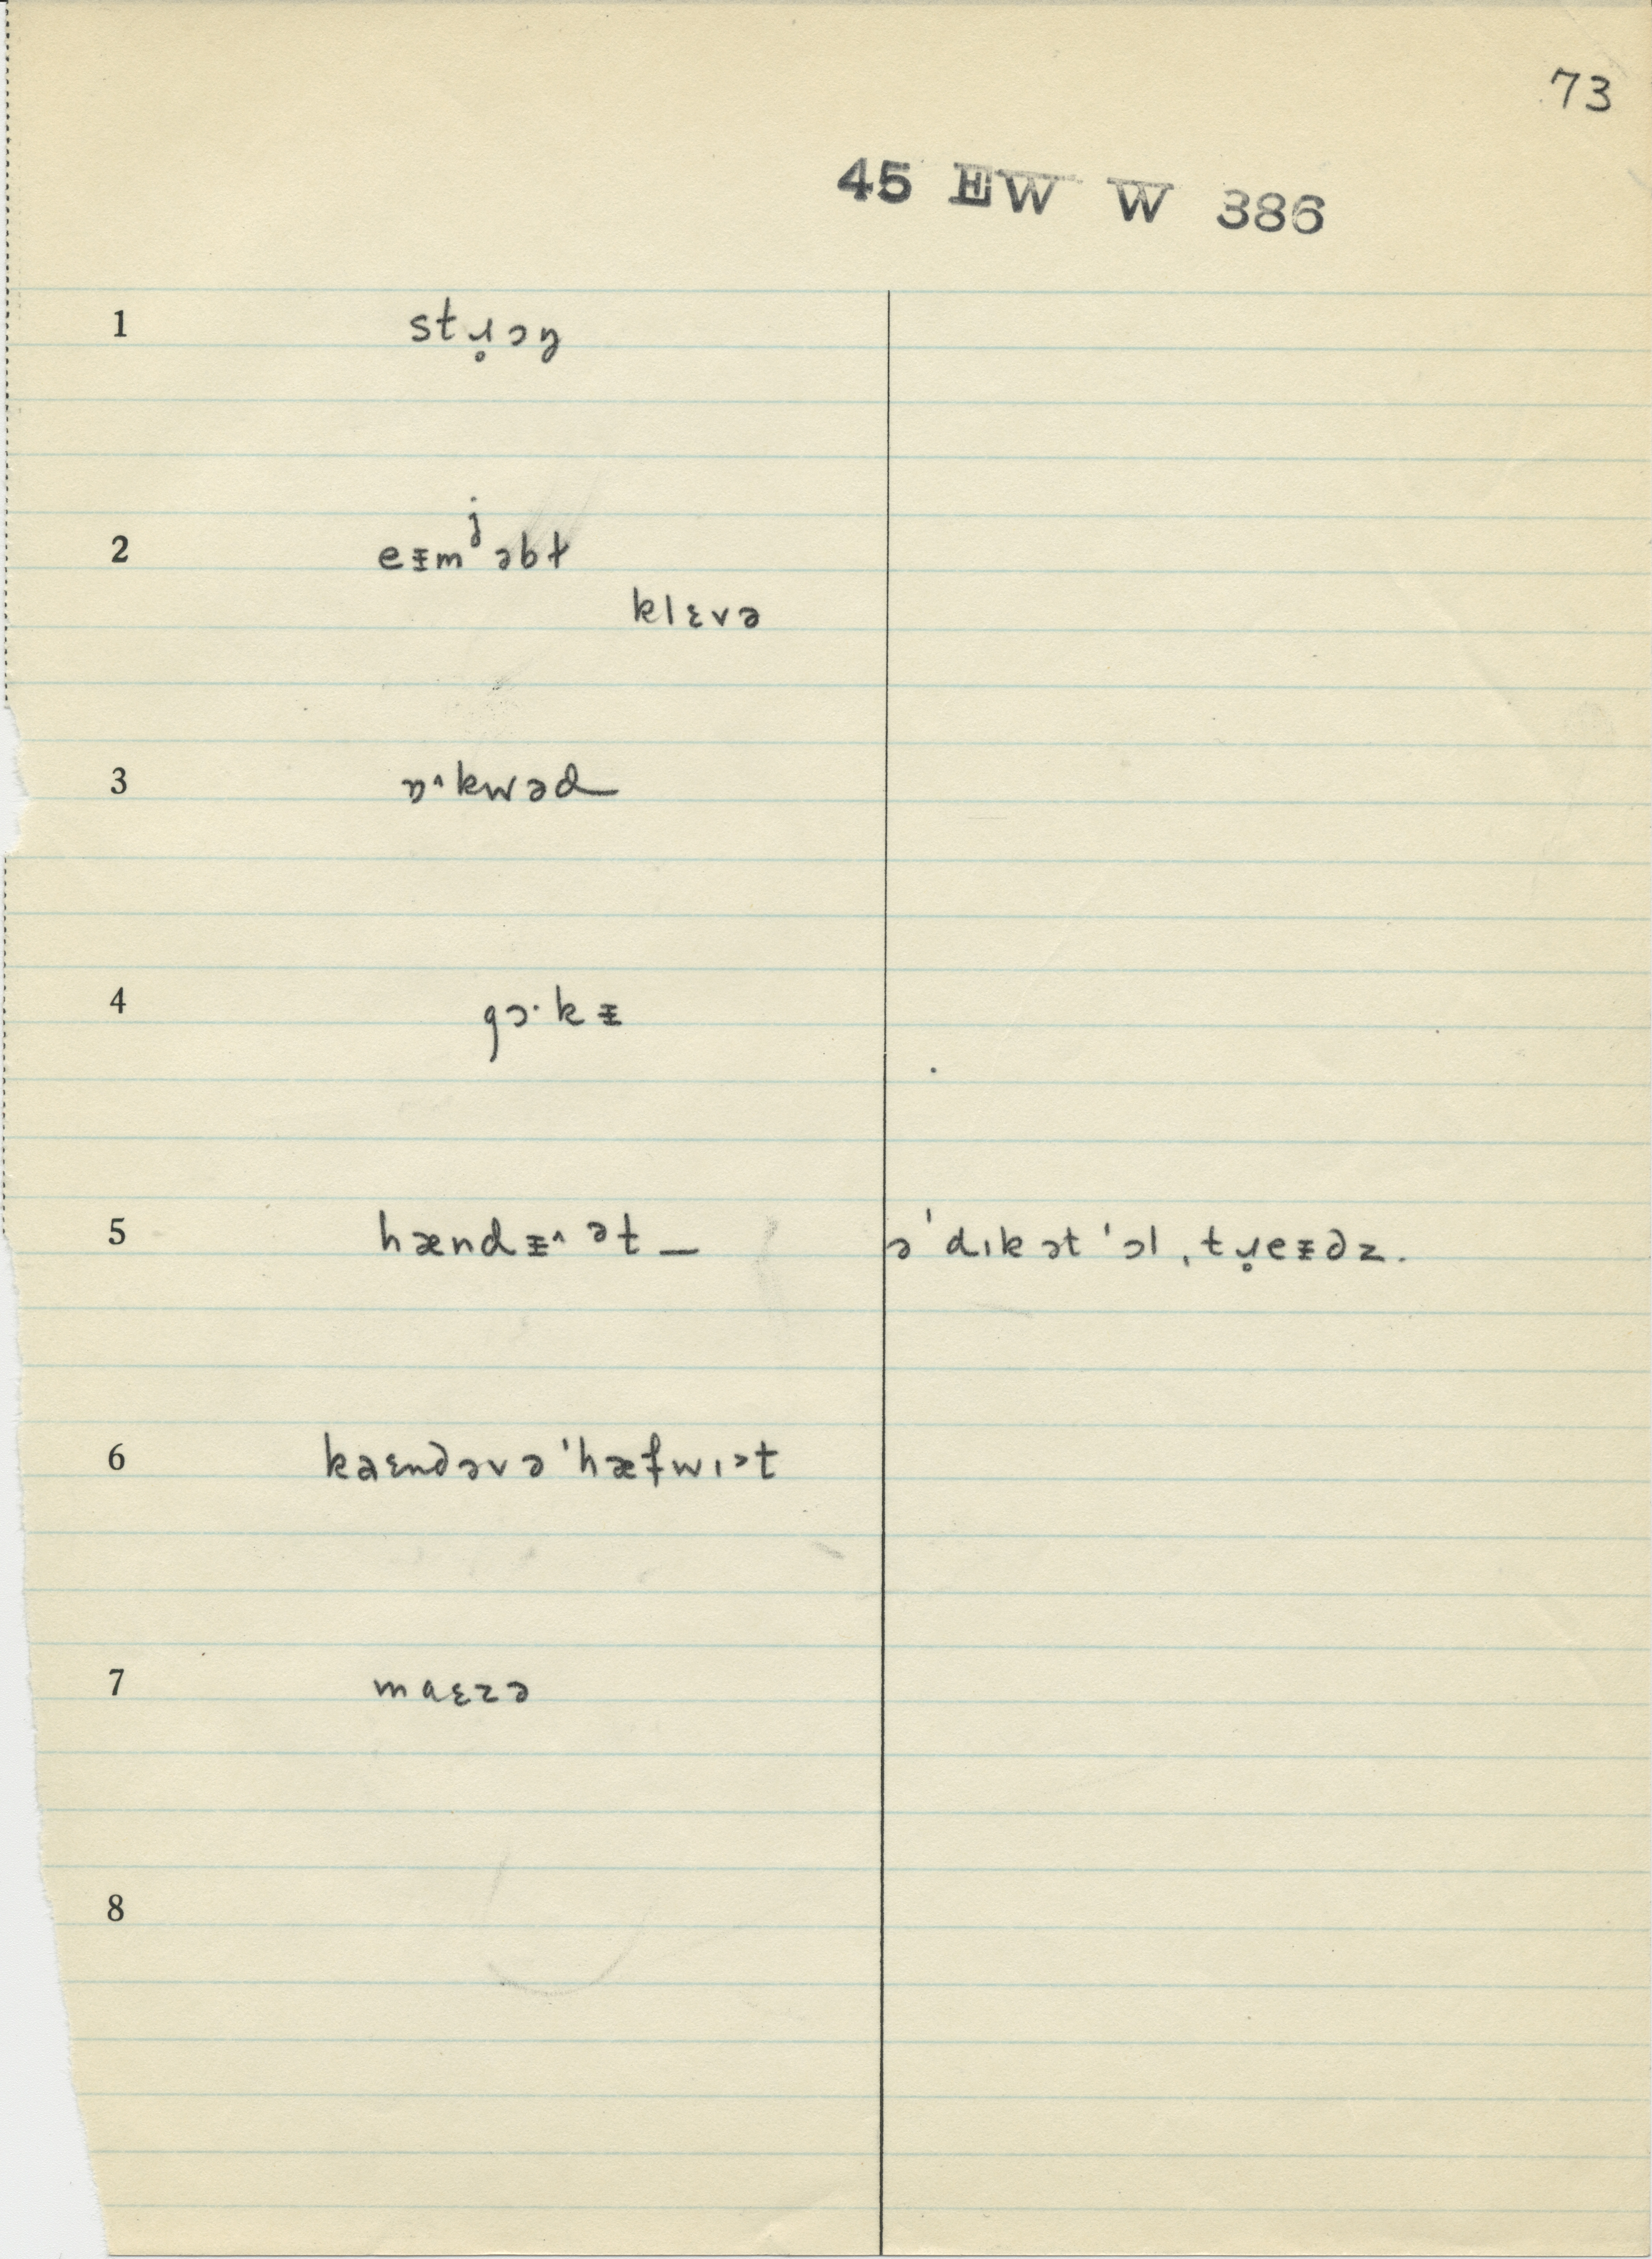 73
45 EW W 386
1 stɹ̥ɔŋ
2 eᵻmʲəbt
klɛvə
3 ɒ˄kwəd
4 gɔ·kᵻ
5 hændᵻ˄ ət — ə'dɪkət 'ɔl ˌtɹ̥eᵻdz.
6 kaɛndəvə 'hæfwɪ˃t
7 maɛzə
8